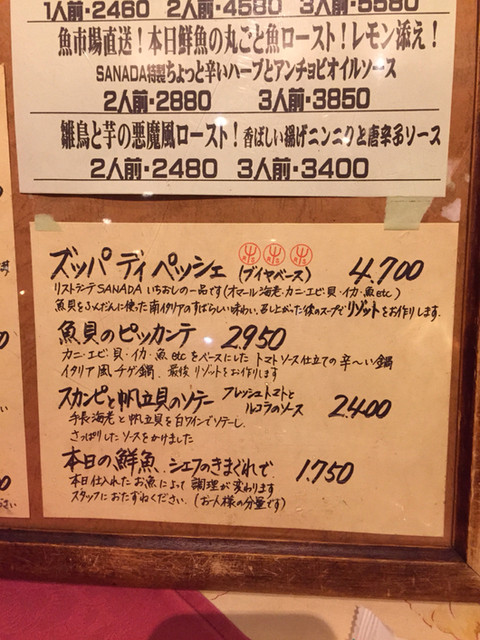 1人前・2460 2人前・4580 3人前・5580
魚市場直送！本日鮮魚の丸ごと魚ロースト！レモン添え！
SANADA特製ちょっと辛いハーブとアンチョビオイルソース
2人前・2880 3人前・3850
雛鳥と芋の悪魔風ロースト！香ばしい揚げニンニクと唐辛子ソース
2人前・2480 3人前・3400
ズッパ ディ ペッシェ (ブイヤベース) 4.700
リストランテSANADA いちおしの一品です(オマール海老・カニ・エビ・貝・イカ・魚etc)
魚貝をふんだんに使った南イタリアのすばらしい味わい。召し上がった後のスープでリゾットをお作りします.
魚貝のピッカンテ 2950
カニ・エビ・貝・イカ・魚etcをベースにした トマトソース仕立ての辛〜い鍋
イタリア風チゲ鍋. 最後リゾットをお作りします
スカンピと帆立貝のソテー フレッシュトマトとルコラのソース 2.400
手長海老と帆立貝を白ワインでソテーし.
さっぱりしたソースをかけました
本日の鮮魚.シェフのきまぐれで. 1.750
本日仕入れたお魚によって調理が変わります
スタッフにおたずねください. (お一人様の分量です)